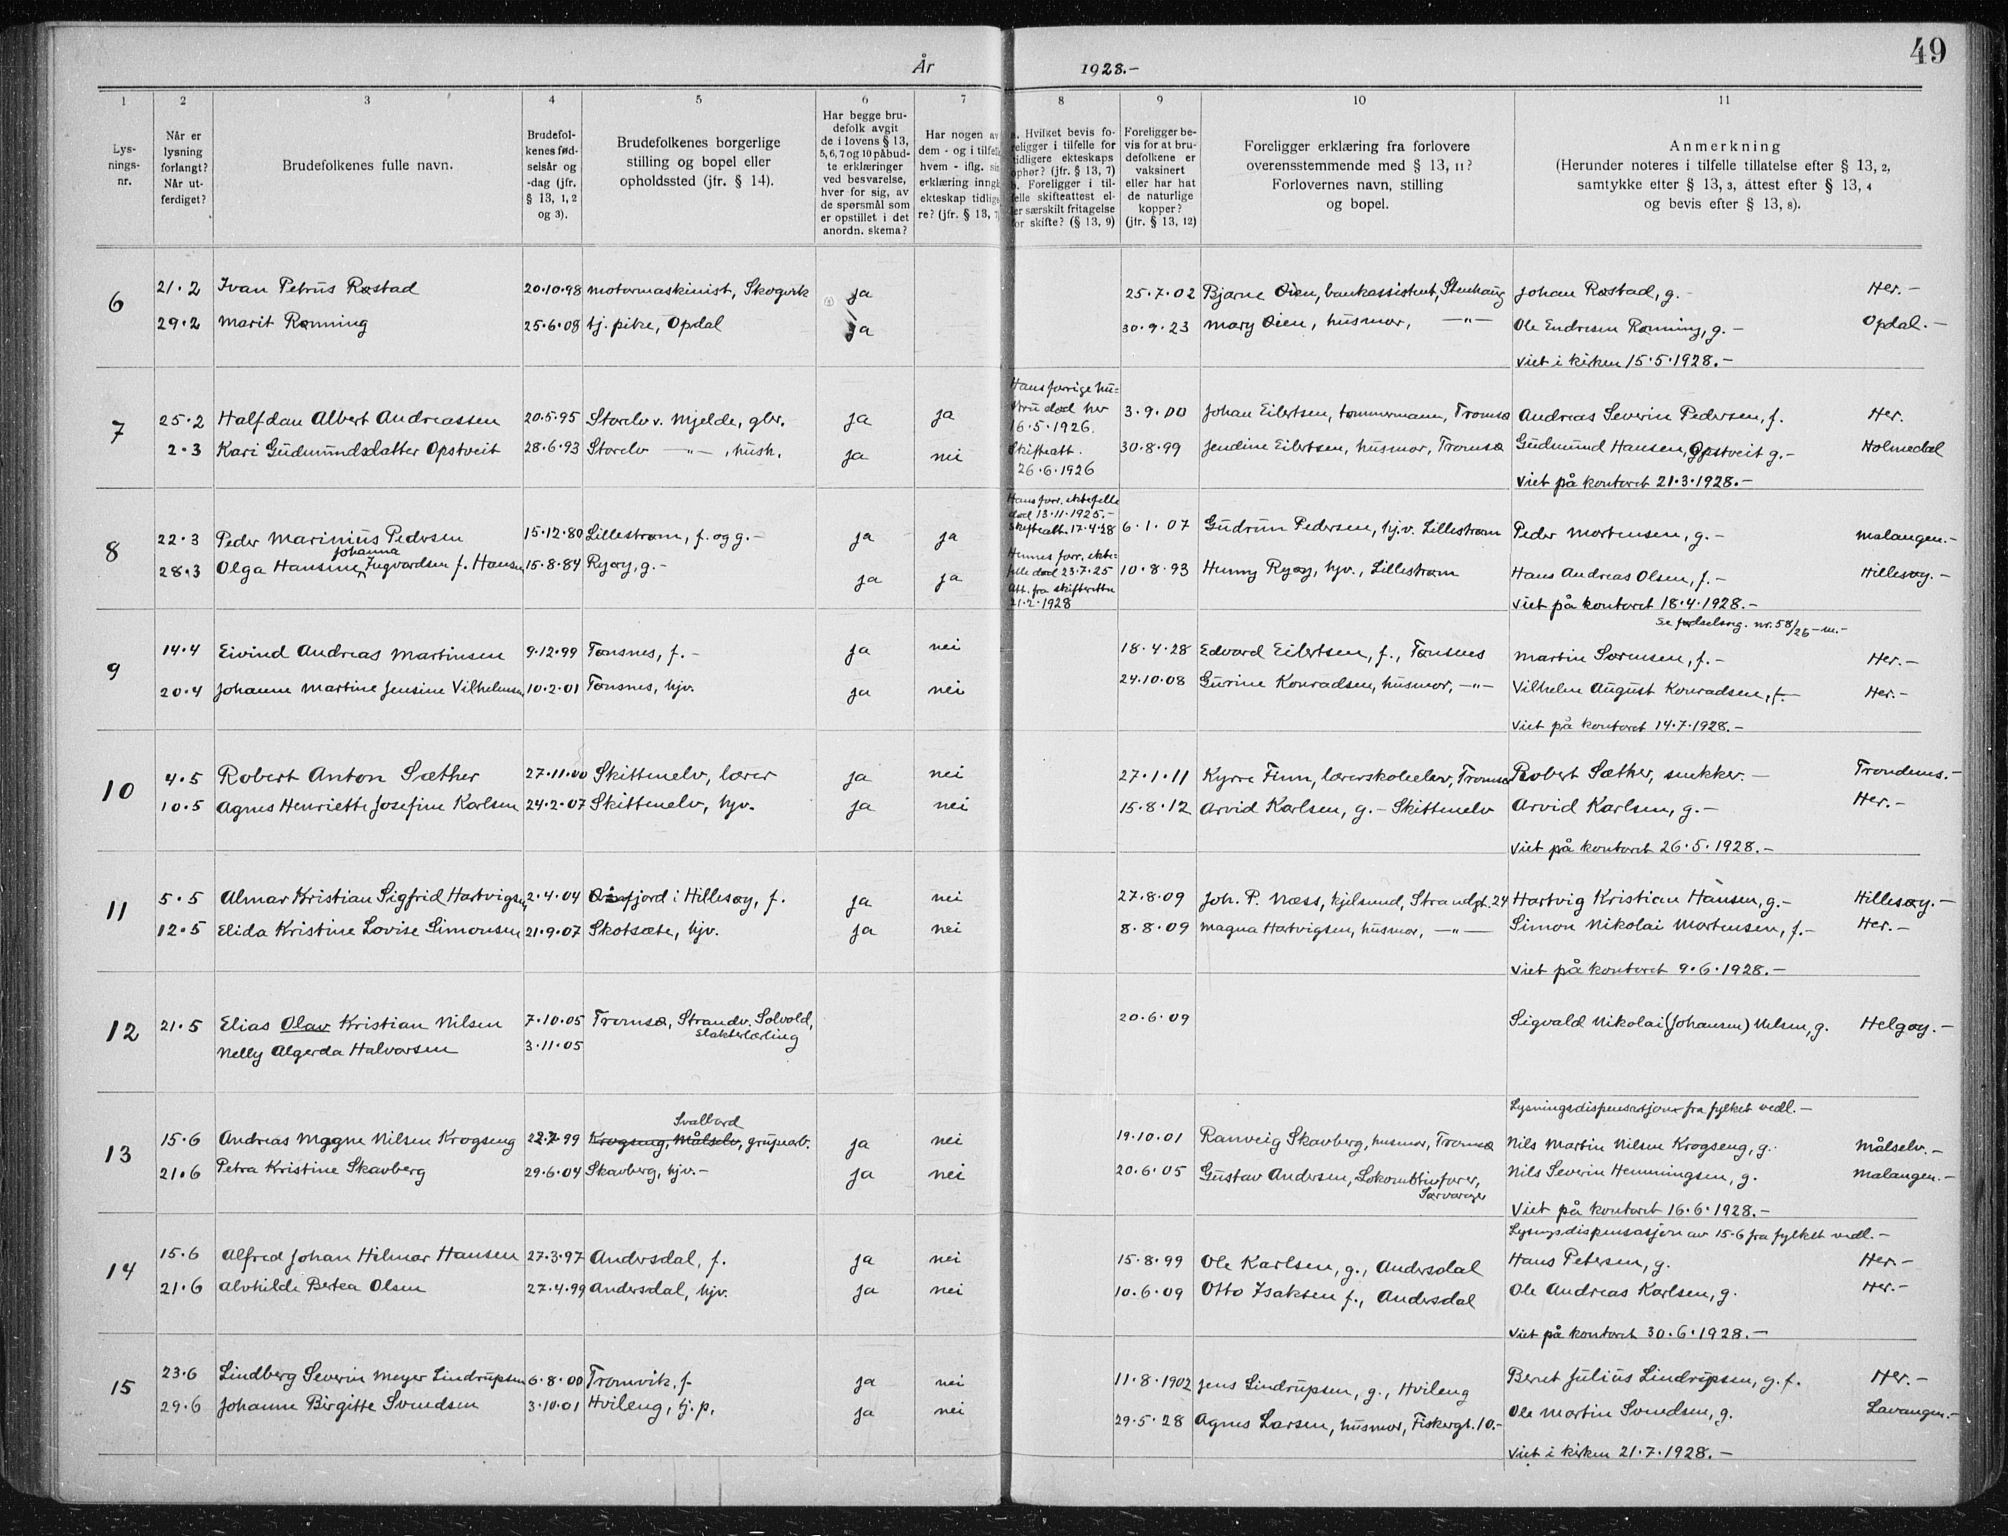 49
År 1928.-
1 2 3 4 5 6 7 8 9 10 11
Lys-
nings-
nr.
Når er
lysning
forlangt?
Når ut-
ferdiget?
Brudefolkenes fulle navn.
Brudefol-
kenes fød-
selsår og
-dag (jfr.
§ 13, 1, 2
og 3).
Brudefolkenes borgerlige
stilling og bopel eller
opholdssted (jfr. § 14).
Har begge bru-
defolk avgit
de i lovens § 13,
5, 6, 7 og 10 påbud-
te erklæringer
ved besvarelse,
hver for sig, av
de spørsmål som
er opstillet i det
anordn. skema?
Har nogen av
dem - og i tilfelle
hvem - iflg. si
erklæring inngå
ekteskap tidlige
re? (jfr. § 13, 7
a. Hvilket bevis fo-
religger i tilfelle for
tidligere ekteskaps
ophør? (jfr. § 13, 7)
b. Foreligger i til-
felle skifteattest el-
ler særskilt fritagelse
for skifte? (§ 13, 9)
Foreligger be-
vis for at bru-
defolkene er
vaksinert
eller har hat
de naturlige
kopper?
(jfr. § 13, 12)
Foreligger erklæring fra forlovere
overensstemmende med § 13, 11?
Forlovernes navn, stilling
og bopel.
Anmerkning
(Herunder noteres i tilfelle tillatelse efter § 13, 2,
samtykke etter § 13, 3, åttest efter § 13, 4
og bevis efter § 13, 8).
6 21.2 Ivan Petrus Røstad 20.10.98 motormaskinist, Skogvik ja 25.7.02 Bjarne Øien, bankassistent, Stenhaug Johan Røstad, g. - Her.-
29.2 Marit Rønning 25.6.08 tj. pike, Opdal ja 30.9.23 Mary Øien, husmor, -"- Ole Endresen Rønning, g. - Opdal.-
Viet i kirken 15.5.1928.-
7 25.2 Halfdan Albert Andreassen 20.5.95 Storelv v. Mjelde, gbr. ja ja Hans forrige hu-
stru død her
16.5.1926. 3.9.00 Johan Eilertsen, tømmermann, Tromsø Andreas Severin Pedersen, f. Her.
2.3 Kari Gudmundsdatter Opstveit 28.6.93 Storelv -"-, hush. ja nei Skifteatt.
26.6.1926 30.8.99 Jendine Eilertsen, husmor, Tromsø Gudmund Hansen, Opstveit g. - Holmedal
Viet på kontoret 21.3.1928.-
8 22.3 Peder Marinius Pedersen 15.12.80 Lillestrøm, f. og g. - ja ja Hans forr. ektefelle
død 13.11.1925.-
Skifteatt. 17.4.28 6.1.07 Gudrun Pedersen, hj.v. Lillestrøm Peder Mortensen, g. - Malangen.-
28.3 Olga Hansine Johanna Ingvardsen f. Hansen 15.8.84 Ryøy, g. - ja ja Hennes forr. ekte-
felle død 23.7.25
Att. fra skifteretten
21.2.1928 10.8.93 Henny Ryøy, hjv., Lillestrøm Hans Andreas Olsen, f. - Hillesøy.-
Viet på kontoret 18.4.1928.-
Se fødselsreg. nr. 58/26 - m.-
9 14.4 Eivind Andreas Martinsen 9.12.99 Tønsnes, f. - ja nei 18.4.28 Edvard Eilertsen, f., Tønsnes Martin Sørensen, f. - Her.-
20.4 Johanne Martine Jensine Vilhelmsen 10.2.01 Tønsnes, hjv. ja nei 24.10.08 Gurine Konradsen, husmor, -"- Vilhelm August Konradsen, f. Her.-
Viet på kontoret 14.7.1928.-
10 4.5 Robert Anton Sæther 27.11.00 Skittenelv, lærer ja nei 27.1.11 Kyrre Finn, lærerskoleelev, Tromsø Robert Sæther, snekker. - Trondenes.-
10.5 Agnes Henriette Josefine Karlsen 24.2.07 Skittenelv, hjv. ja nei 15.8.12 Arvid Karlsen, g. - Skittenelv Arvid Karlsen, g. - Her.-
Viet på kontoret 26.5.1928.-
11 5.5 Almar Kristian Sigfrid Hartvigsen 2.4.04 fjord i Hillesøy, f. ja nei 27.8.09 Joh. P. Næss, kjelsmed, Strandgt. 24 Hartvig Kristian Hansen, g. - Hillesøy.-
12.5 Elida Kristine Lovise Simonsen 21.9.07 Skotsæte, hjv. ja nei 8.8.09 Magna Hartvigsen, husmor, -"- Simon Nikolai Mortensen, f. - Her.-
Viet på kontoret 9.6.1928.-
12 21.5 Elias Olav Kristian Nilsen 7.10.05 Tromsø, Strandv. Solvold,
slakterlærling 20.6.09 Sigvald Nikolai (Johansen) Nilsen, g. Helgøy.-
Nelly Algerda Halvorsen 3.11.05
Lysningsdispensasjon fra fylket vedl. -
13 15.6 Andreas Magne Nilsen Krogseng 22.7.99 Krogseng, Målselv, Svalbard grupearb. ja nei 19.10.01 Ranveig Skavberg, husmor, Tromsø Nils Martin Nilsen Krogseng, g. Målselv.-
21.6 Petra Kristine Skavberg 29.6.04 Skavberg, hjv. - ja nei 20.6.05 Gustav Andersen, Lokomotivfører,
Sørvaranger Nils Severin Henningsen, g. Malangen.-
Viet på kontoret 16.6.1928.-
Lysningsdispensasjon av 15.6 fra fylket vedl. -
14 15.6 Alfred Johan Hilmar Hansen 27.3.97 Andersdal, f. ja nei 15.8.99 Ole Karlsen, g., Andersdal Hans Petersen, g. Her.-
21.6 Alvhilde Bertea Olsen 27.4.99 Andersdal, hjv. ja nei 10.6.09 Otto Isaksen f., Andersdal Ole Andreas Karlsen, g. Her.-
Viet på kontoret 30.6.1928.-
15 23.6 Lindberg Severin Meyer Lindrupsen 6.8.00 Tromvik, f. ja nei 11.8.1902 Jens Lindrupsen, g., Hvileng Bernt Julius Lindrupsen, g. f. Her.-
29.6 Johanne Birgitte Svendsen 3.10.01 Hvileng, tj. p. ja nei 29.5.28 Agnes Larsen, husmor, Fiskergt. 10.- Ole Martin Svendsen, g. Lavangen.-
Viet i kirken 21.7.1928.-